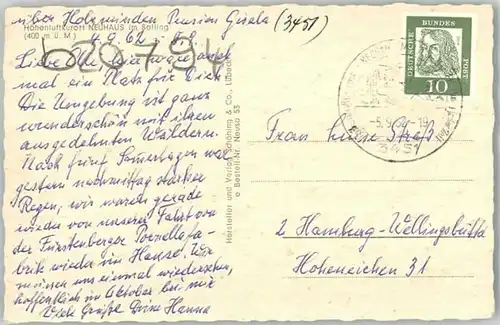 über Holzminden Pension Gisela (3451)
Höhenluftkurort NEUHAUS im Solling
(400 m ü. M.)
4.9.62
620791
Liebe
mal ein Platz für Dich
Die Umgebung ist ganz
wunderschön mit ihren
ausgedehnten Wäldern.
Nach fünf Sonnentagen war
gestern nachmittag starker
Regen, wir waren gerade
wieder von unserer Fahrt von
der Fürstenberger Porzellanfa-
brik wieder im Hause. Wir
müssen uns einmal wiedersehen,
hoffentlich im Oktober bei mir
Viele Grüße Deine Hanna
Hersteller und Verlag Schöning & Co., Lübeck
Bestell-Nr. Neusa 53
DEUTSCHE BUNDESPOST
10
5.9.62-19
3451
Frau Luise Straß
2 Hamburg-Wellingsbüttel
Hoheneichen 31